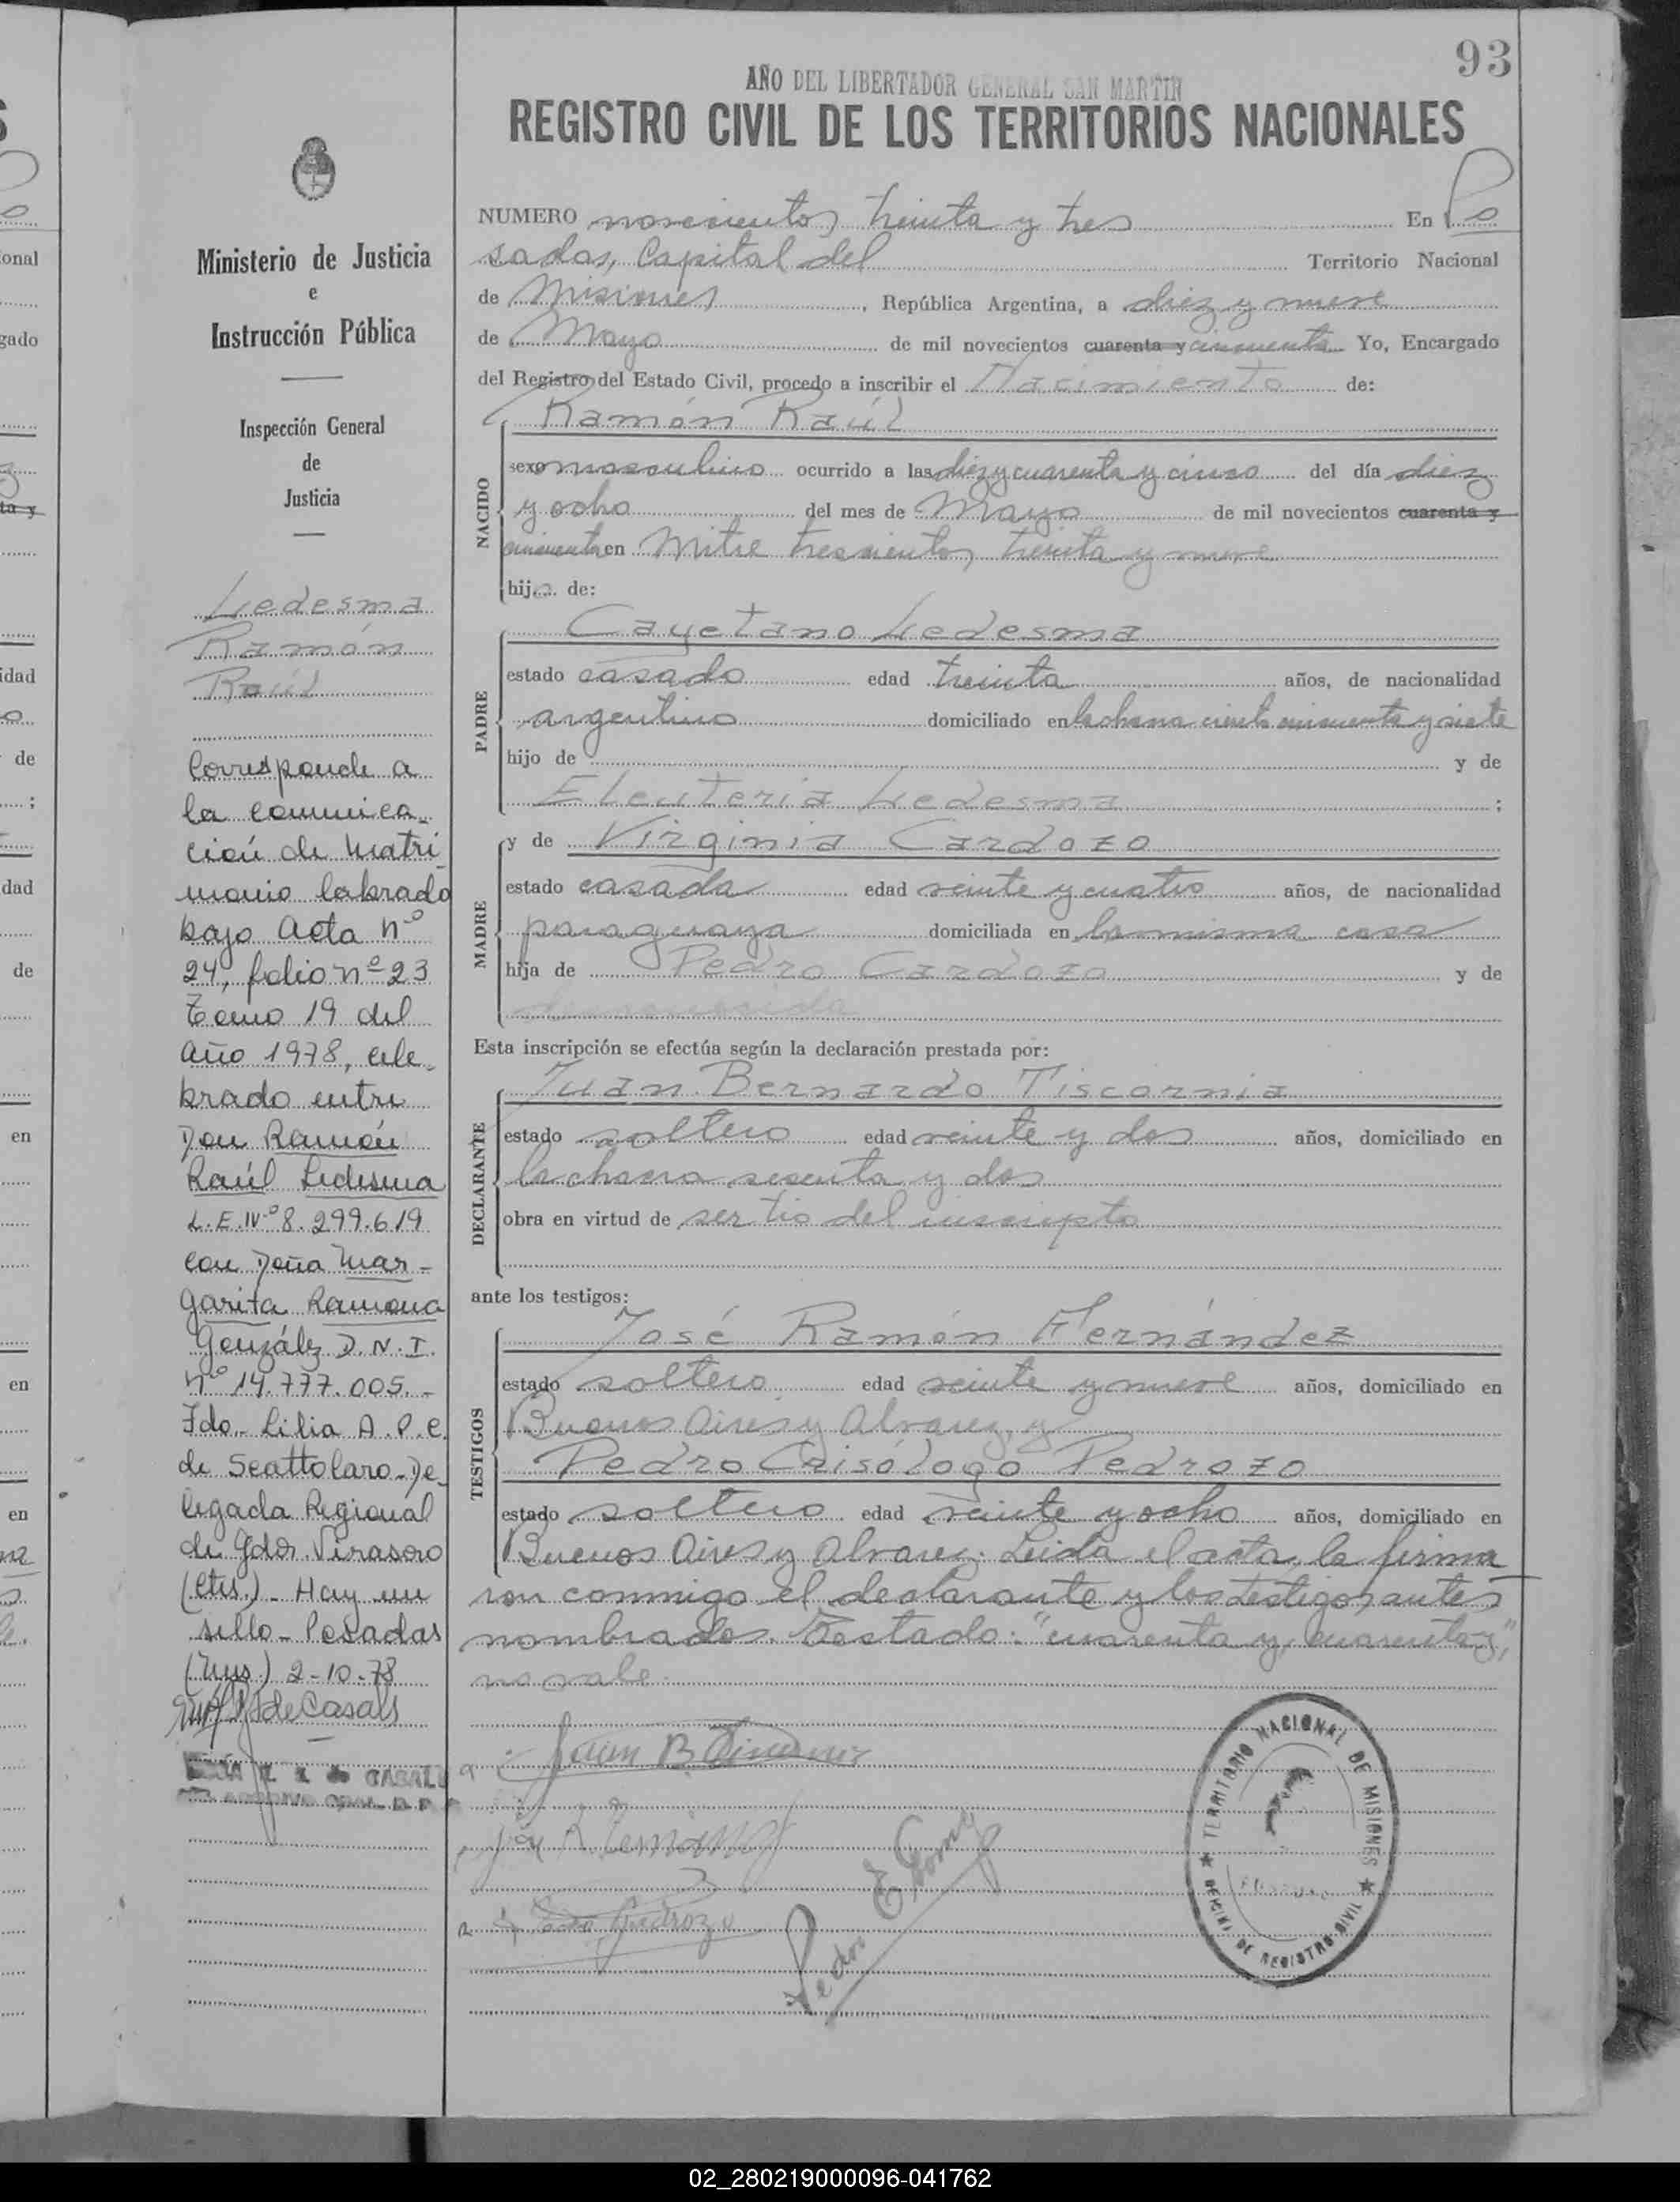 93
AÑO DEL LIBERTADOR GENERAL SAN MARTIN
REGISTRO CIVIL DE LOS TERRITORIOS NACIONALES
Ministerio de Justicia
e
Instrucción Pública
Inspección General
de
Justicia
Ledesma
Ramón
Raúl
Corresponde a
la comunica-
ción de Matri
monio labrado
bajo Acta nº
24, folio nº 23
Tomo 19 del
año 1978, cele-
brado entre
Don Ramón
Raúl Ledesma
L.E. Nº 8.299.619
con Doña Mar-
garita Ramona
González D.N.I.
nº 14.777.005.-
Fdo.- Lilia A.P.C.
de Scattolaro-De-
legada Regional
de Gdor. Virasoro
(Ctes.)- Hay un
sello- Posadas
(Mns.) 2-10-78
de Casals
CASALS
NUMERO novecientos treinta y tres En Po
sadas, Capital del Territorio Nacional
de Misiones, República Argentina, a diez y nueve
de Mayo de mil novecientos cuarenta y cincuenta Yo, Encargado
del Registro del Estado Civil, procedo a inscribir el Nacimiento de:
NACIDO
Ramón Raúl
sexo masculino ocurrido a las diez y cuarenta y cinco del día diez
y ocho del mes de Mayo de mil novecientos cuarenta y
cincuenta en Mitre trescientos treinta y nueve
hijo de:
PADRE
Cayetano Ledesma
estado casado edad treinta años, de nacionalidad
argentino domiciliado en la chacra ciento cincuenta y siete
hijo de y de
Eleuteria Ledesma ;
MADRE
y de Virginia Cardozo
estado casada edad veinte y cuatro años, de nacionalidad
paraguaya domiciliada en la misma casa
hija de Pedro Cardozo y de
desconocida
Esta inscripción se efectúa según la declaración prestada por:
DECLARANTE
Juan Bernardo Tiscornia
estado soltero edad veinte y dos años, domiciliado en
la chacra sesenta y dos
obra en virtud de ser tio del inscripto
ante los testigos:
TESTIGOS
José Ramón Fernández
estado soltero edad veinte y nueve años, domiciliado en
Buenos Aires y Alvarez, y
Pedro Crisólogo Pedrozo
estado soltero edad veinte y ocho años, domiciliado en
Buenos Aires y Alvarez. Leida el acta, la firma
ron conmigo el declarante y los testigos antes
nombrados. Testado: "cuarenta y, cuarenta y",
no vale.
Juan B Tiscornia
José R Fernández
Pedro Pedrozo
Pedro E. Gomez
TERRITORIO NACIONAL DE MISIONES
OFICINA DE REGISTRO CIVIL
02_280219000096-041762